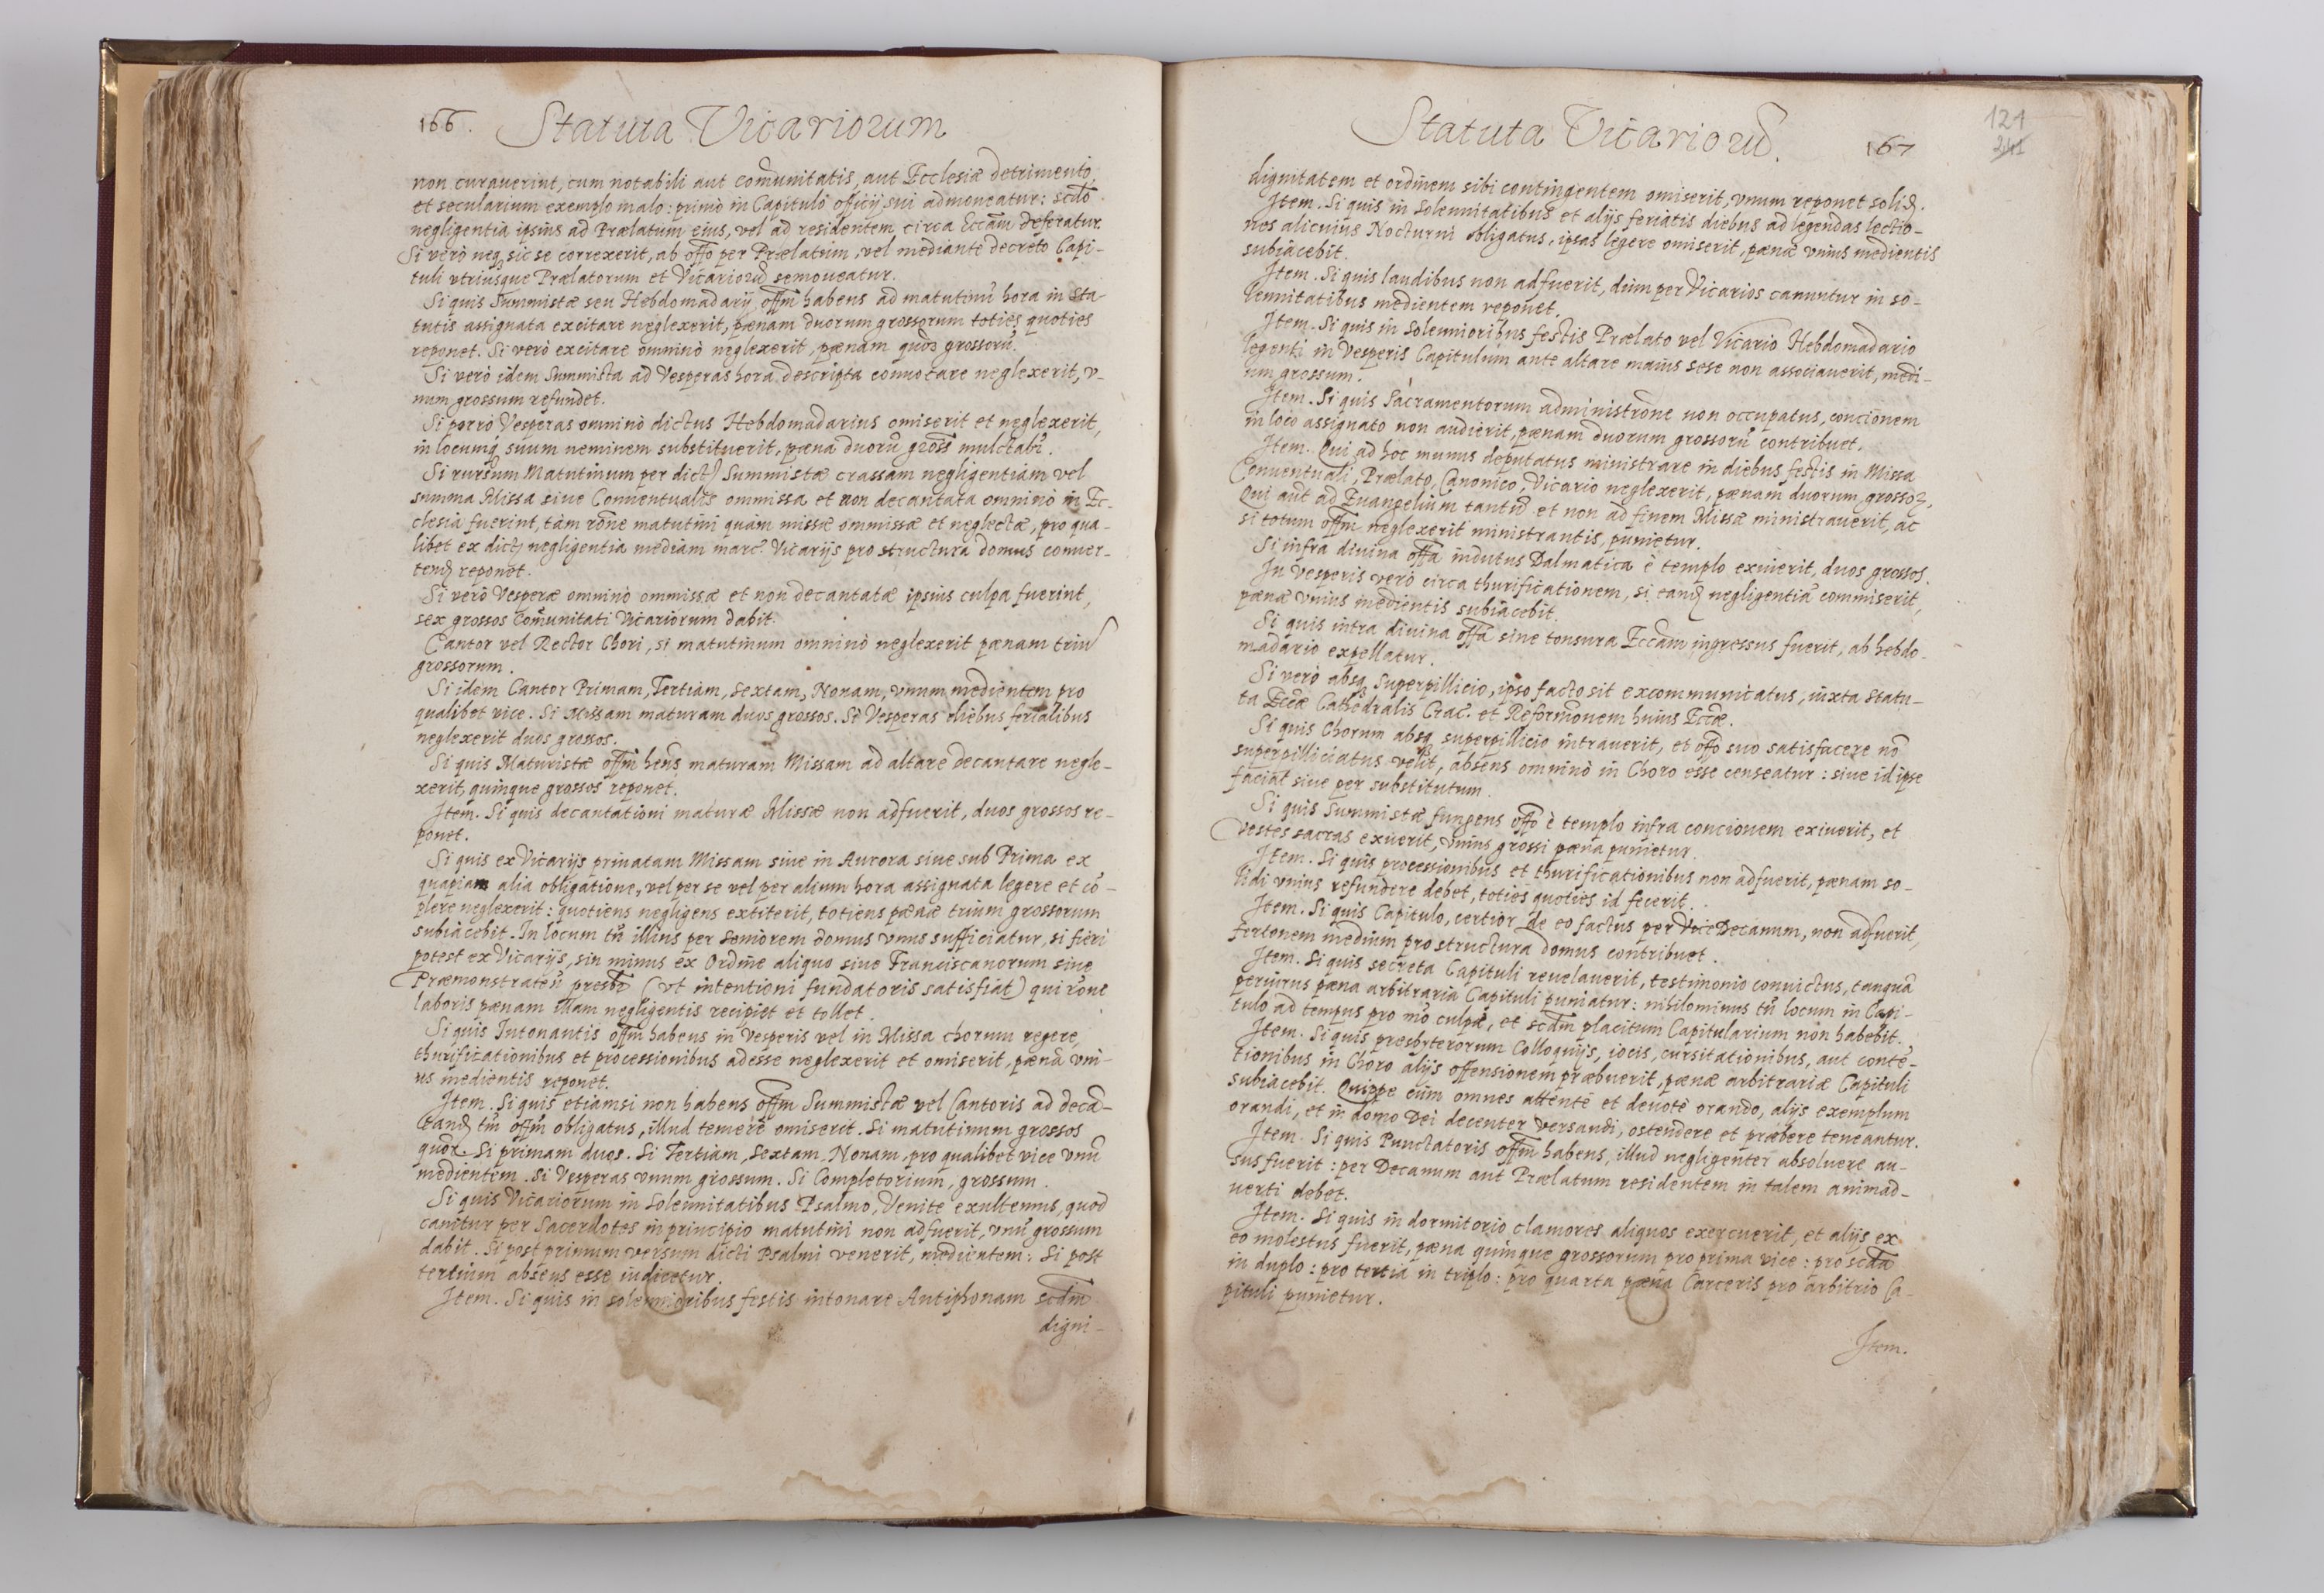 166. Statuta Vicariorum
non curauerint, cum notabili aut com̄unitatis, aut Ecclesiæ detrimento,
et secularium exemplo malo: primò in Capitulo officij sui admoneatur: scd̄o
negligentia ipsius ad Prælatum eius, vel ad residentem circa Ecc̄am deferatur.
Si verò neqꝫ sic se correxerit, ab off̄o per Prælatum, vel mediante decreto Capi-
tuli vtriusque Prælatorum et Vicariorū semoueatur.
Si quis Summistæ seu Hebdomadarij off̄m habens ad matutinū hora in Sta-
tutis assignata excitare neglexerit, pænam duorum grossorum toties quoties
reponet. Si verò excitare omninò neglexerit, pænam quõꝫ grossorū.
Si verò idem Summista ad Vesperas hora descripta conuocare neglexerit, v-
num grossum refundet.
Si porrò Vesperas omninò dictus Hebdomadarius omiserit et neglexerit,
in locumqꝫ suum neminem substituerit, pæna duorū gross̄ mulctabr̄.
Si rursum Matutinum per dictꝭ Summistæ crassam negligentiam vel
summa Missa siue Conuentualis ommissa et non decantata omninò in Ec-
clesia fuerint, tàm rōne matutini quàm missæ ommissæ et neglectæ, pro qua-
libet ex dictꝭ negligentia mediam marc. Vicarijs pro structura domus conuer-
tendꝭ reponet.
Si verò Vesperæ omninò ommissæ et non decantatæ ipsius culpa fuerint,
sex grossos com̄unitati Vicariorum dabit.
Cantor vel Rector Chori, si matutinum omninò neglexerit pænam triū
grossorum.
Si idem Cantor Primam, Tertiam, Sextam, Nonam, vnum medientem pro
qualibet vice. Si Missam maturam duos grossos. Si Vesperas diebus ferialibus
neglexerit duos grossos.
Si quis Maturistæ off̄m hens̄ maturam Missam ad altare decantare negle-
xerit, quinque grossos reponet.
Item. Si quis decantationi maturæ Missæ non adfuerit, duos grossos re-
ponet.
Si quis ex Vicarijs priuatam Missam siue in Aurora siue sub Prima ex
quapiam alia obligatione, vel per se vel per alium hora assignata legere et cō-
plere neglexerit: quotiens negligens extiterit, totiens pænæ trium grossorum
subiacebit. In locum tn̄ illius per Seniorem domus vnus sufficiatur, si fieri
potest ex Vicarijs, sin minus ex Ordine aliquo siue Franciscanorum siue
Præmonstrateñ presbr̄ (vt intentioni fundatoris satisfiat) qui rōne
laboris pænam illam negligentis recipiet et tollet.
Si quis Intonantis off̄m habens in Vesperis vel in Missa chorum regere,
thurificationibus et processionibus adesse neglexerit et omiserit, pænā vni-
us medientis reponet.
Item. Si quis etiamsi non habens off̄m Summistæ vel Cantoris ad decā-
tandꝭ tn̄ off̄m obligatus, illud temerè omiserit. Si matutinum grossos
quõr. Si primam duos. Si Tertiam, Sextam, Nonam, pro qualibet vice vnū
medientem. Si Vesperas vnum grossum. Si Completorium, grossum.
Si quis Vicariorum in solennitatibus Psalmo, Venite exultemus, quod
canitur per Sacerdotes in principio matutini non adfuerit, vnū grossum
dabit. Si post primum versum dicti Psalmi venerit, medientem: Si post
tertium absens esse iudicetur.
Item. Si quis in solennioribus festis intonare Antiphonam scd̄m
digni-
Statuta Vicariorū. 167
121
241
dignitatem et ordinem sibi contingentem omiserit, vnum reponet solidꝭ.
Item. Si quis in Solennitatibus et alijs feriatis diebus ad legendas lectio-
nes alicuius Nocturni obligatus, ipsas legere omiserit, pænæ vnius medientis
subiacebit.
Item. Si quis laudibus non adfuerit, dum per Vicarios canuntur in so-
lennitatibus medientem reponet.
Item. Si quis in Solennioribus festis Prælato vel Vicario Hebdomadario
legenti in Vesperis Capitulum ante altare maius sese non associauerit, medi-
um grossum.
Item. Si quis Sacramentorum administrōne non occupatus, concionem
in loco assignato non audierit, pænam duorum grossorū contribuet.
Item. Qui ad hoc munus deputatus ministrare in diebus festis in Missa
Conuentuali, Prælato, Canonico, Vicario neglexerit, pænam duorum grossoꝝ.
Qui aut̄ ad Euangelium tantū et non ad finem Missæ ministrauerit, ac
si totum off̄m neglexerit ministrantis, punietur.
Si infra diuina off̄a indutus Dalmatica è templo exiuerit, duos grossos.
In Vesperis verò circa thurificationem, si eandꝭ negligentiā commiserit,
pænæ vnius medientis subiacebit.
Si quis intra diuina off̄a sine tonsura Ecc̄am ingressus fuerit, ab hebdo-
madario expellatur.
Si verò absqꝫ superpillicio, ipso facto sit excommunicatus, iuxta Statu-
ta Ecc̄æ Cathedralis Crac. et Reformōnem huius Ecc̄æ.
Si quis Chorum absqꝫ superpillicio intrauerit, et off̄o suo satisfacere nō
superpilliciatus velit, absens omninò in Choro esse censeatur: siue id ipse
faciat siue per substitutum.
Si quis Summistæ fungens off̄o è templo infra concionem exiuerit, et
vestes sacras exuerit, vnius grossi pæna punietur.
Item. Si quis processionibus et thurificationibus non adfuerit, pænam so-
lidi vnius refundere debet, toties quoties id fecerit.
Item. Si quis Capitulo, certior de eo factus per Vice Decanum, non adfuerit,
fertonem medium pro structura domus contribuet.
Item. Si quis secreta Capituli reuelauerit, testimonio conuictus, tanquā
periurus pæna arbitraria Capituli puniatur: nihilominus tn̄ locum in Capi-
tulo ad tempus pro mō culpæ, et scd̄m placitum Capitularium non habebit.
Item. Si quis presbyterorum Colloquijs, iocis, cursitationibus, aut contē-
tionibus in Choro alijs offensionem præbuerit, pænæ arbitrariæ Capituli
subiacebit. Quippe cùm omnes attentè et deuotè orando, alijs exemplum
orandi, et in domo Dei decenter versandi, ostendere et præbere teneantur.
Item. Si quis Punctatoris off̄m habens, illud negligenter absoluere au-
sus fuerit: per Decanum aut Prælatum residentem in talem animad-
uerti debet.
Item. Si quis in dormitorio clamores aliquos exercuerit, et alijs ex
eo molestus fuerit, pæna quinque grossorum pro prima vice: pro scd̄a
in duplo: pro tertia in triplo: pro quarta pæna Carceris pro arbitrio Ca-
pituli punietur.
Item.